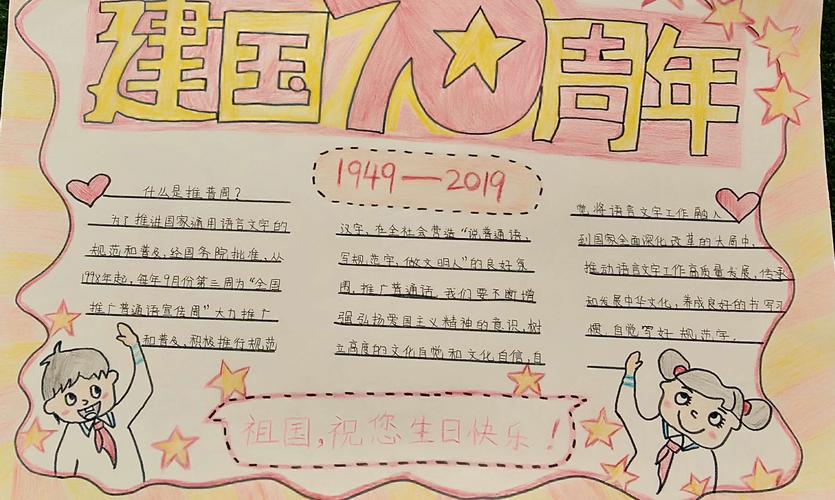 建国70周年
1949—2019
什么是推普周?
为了推进国家通用语言文字的
规范和普及,经国务院批准,从
1998年起,每年9月份第三周为“全国
推广普通话宣传周”大力推广
和普及,积极推行规范
汉字,在全社会营造“说普通话,
写规范字,做文明人”的良好氛
围,推广普通话,我们要不断增
强弘扬爱国主义精神的意识,树
立高度的文化自觉和文化自信,自
觉将语言文字工作融入
到国家全面深化改革的大局中,
推动语言文字工作高质量发展,传承
和发展中华文化,养成良好的书写习
惯,自觉写好规范字。
祖国,祝您生日快乐!